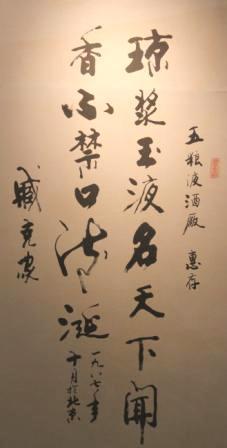 五粮液酒廠 惠存
琼浆玉液名天下聞
香不禁口流涎
一九八七年
十月於北京
臧克家